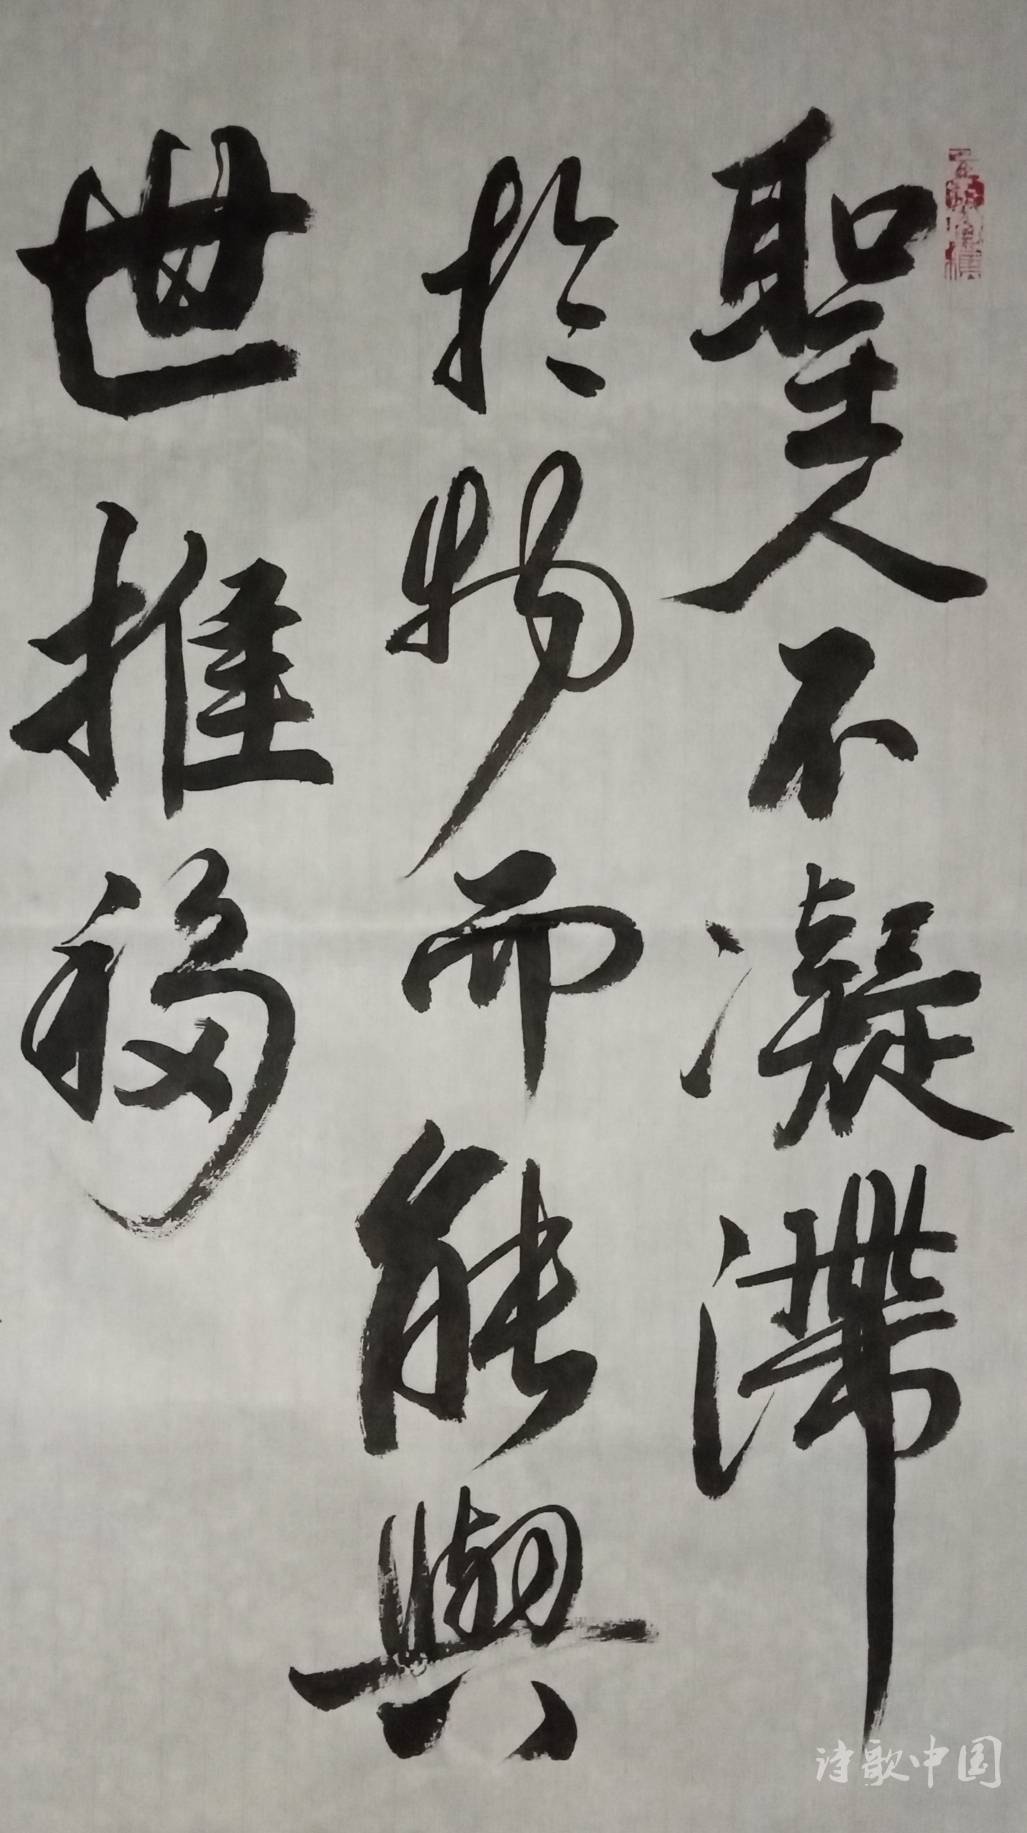 聖人不凝滯
於物而能與
世推移
诗歌中国